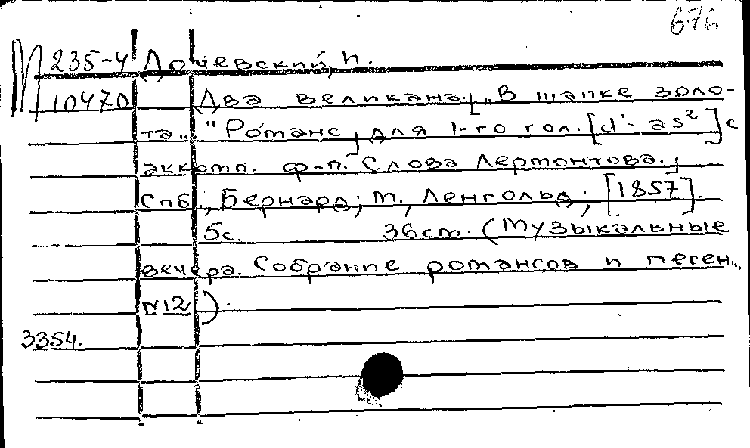 676
М 235-4 Дочевский, П.
10470 Два великана. [„В шапке золо-
та„ " Романс] для 1-го гол. [d'-as²] с
аккомп. ф-п. Слова Лермонтова.
СПб., Бернард; М., Ленгольд; [1857].
5с. 36см. (Музыкальные
вечера. Собрание романсов и песен.
N12).
3354.